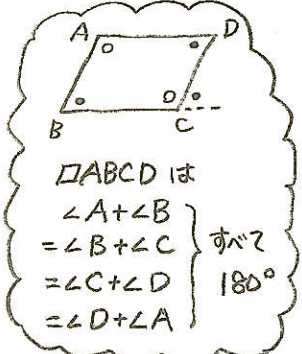 A D
B C
▱ABCDは
∠A+∠B
=∠B+∠C
=∠C+∠D
=∠D+∠A
すべて
180°